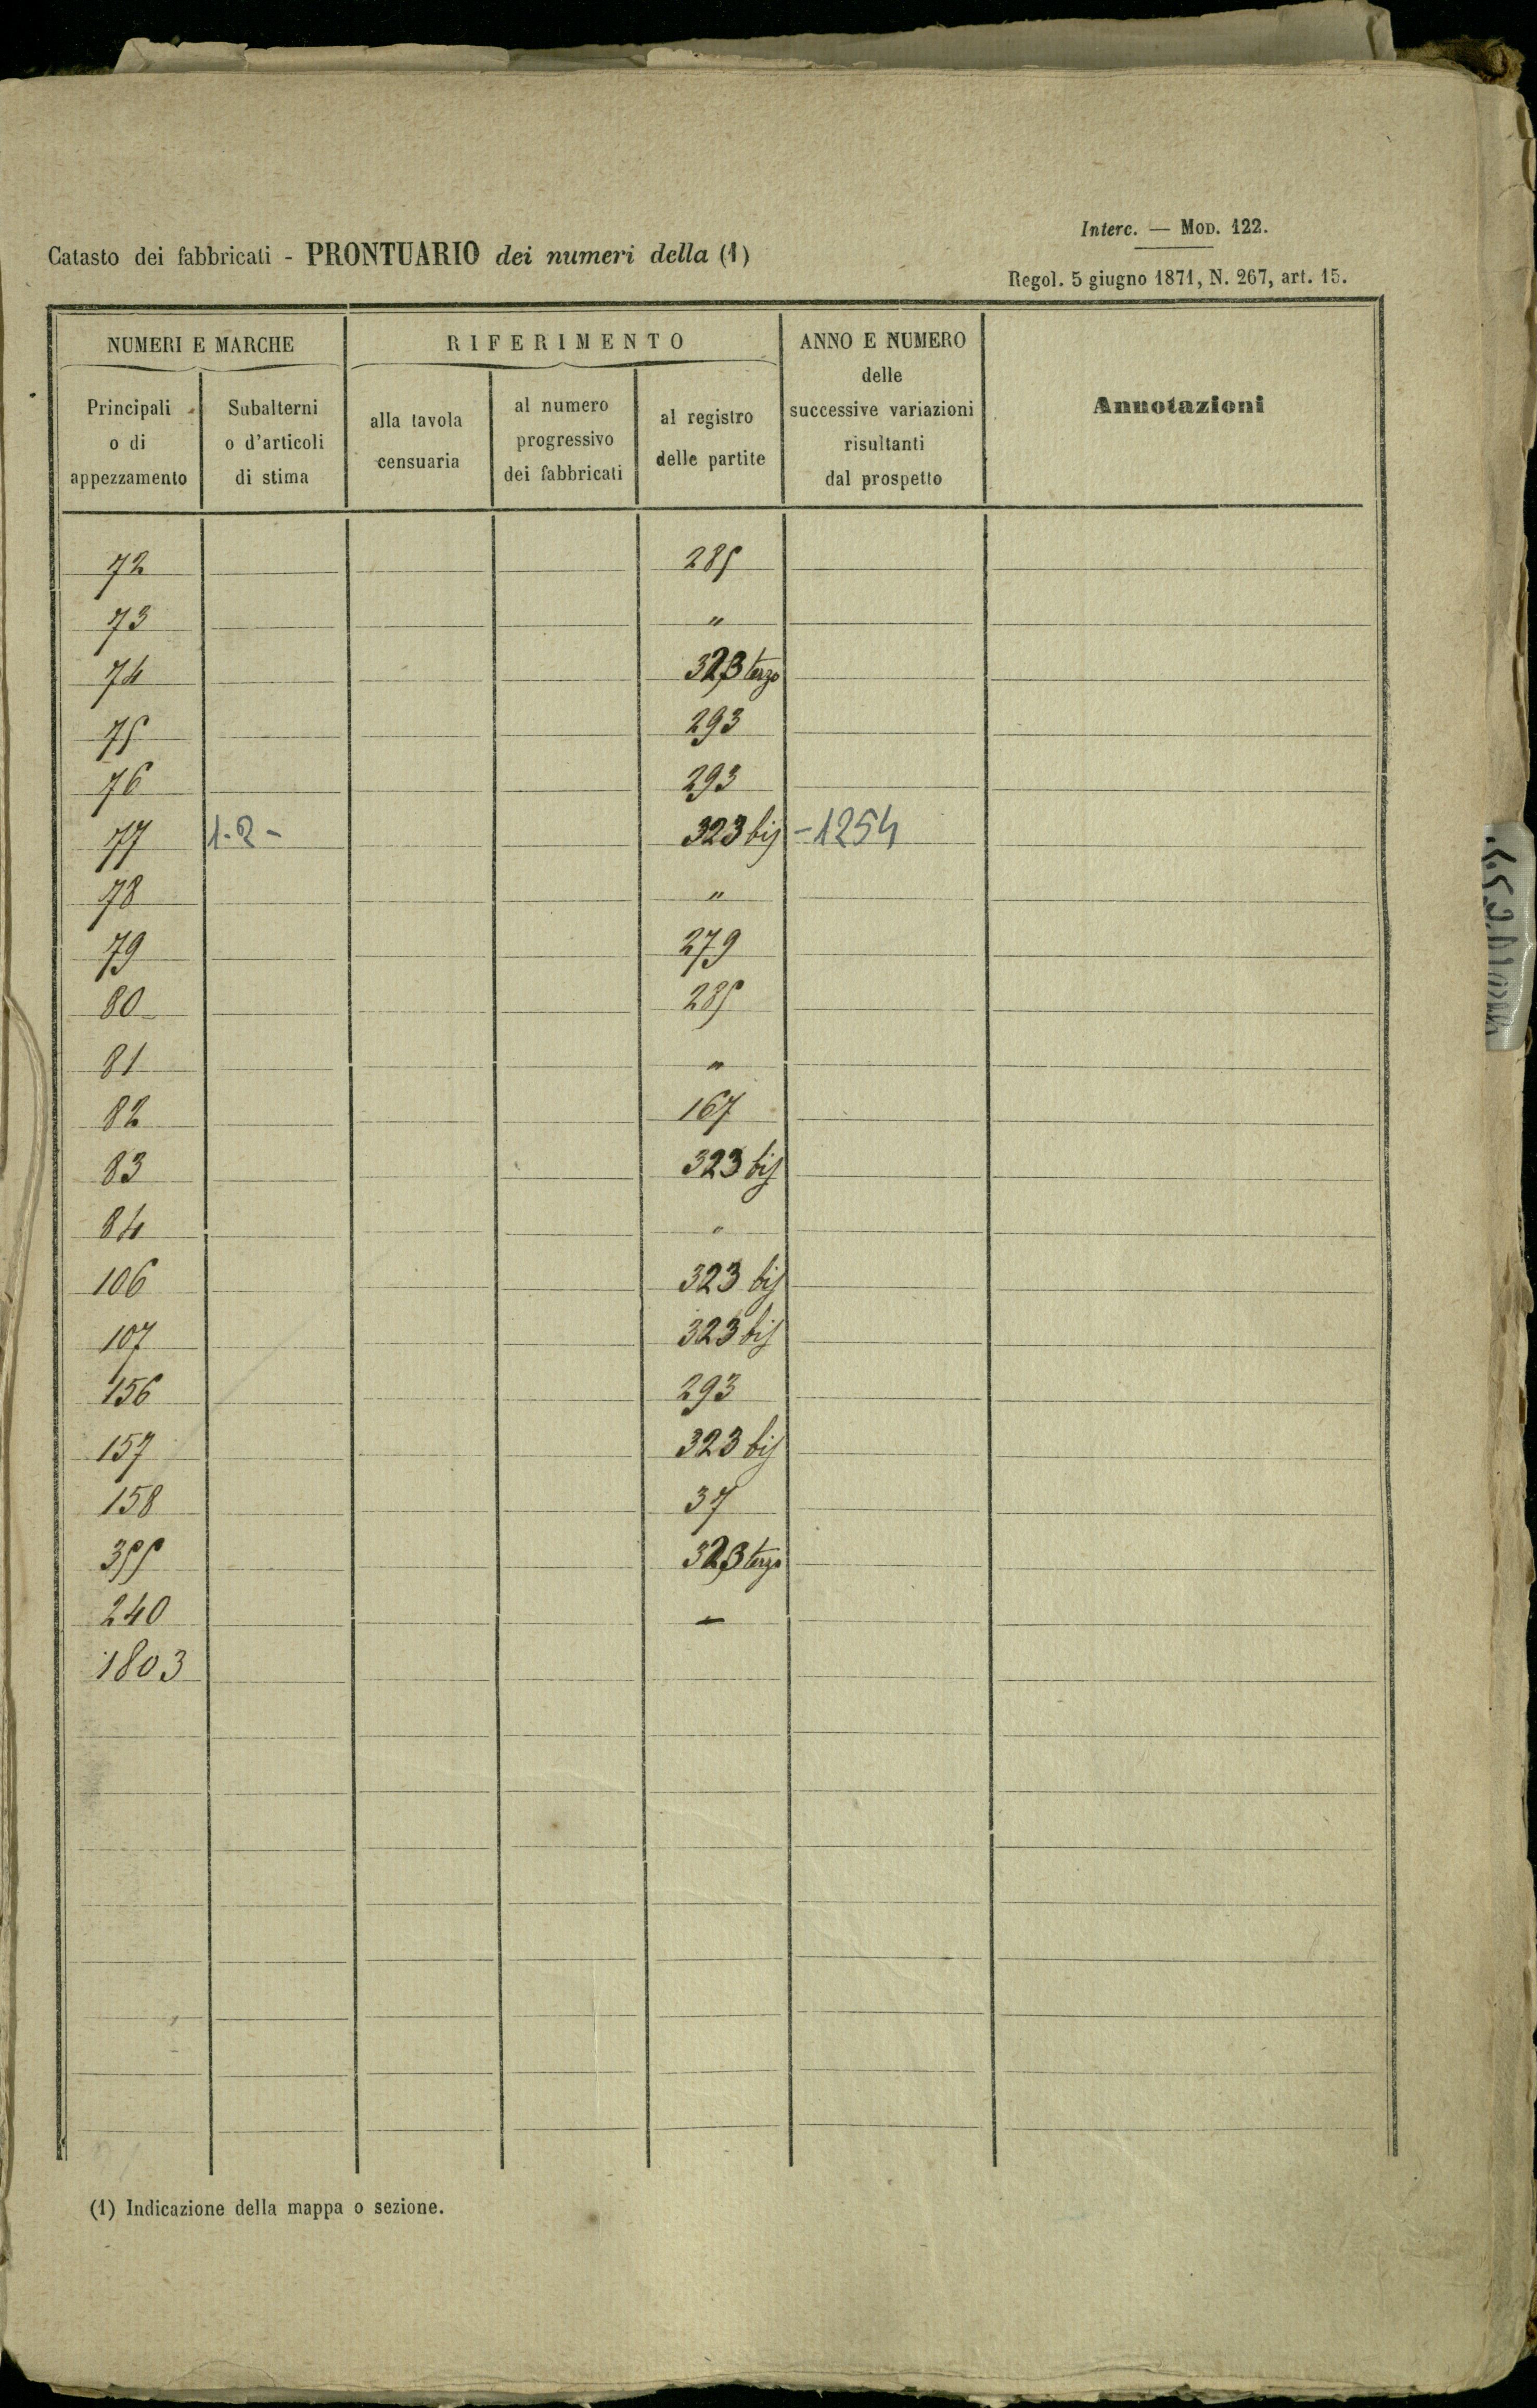 Interc. — Mod. 122.
Catasto dei fabbricati - PRONTUARIO dei numeri della (1)
Regol. 5 giugno 1871, N. 267, art. 15.
NUMERI E MARCHE
Principali o di appezzamento
Subalterni o d'articoli di stima
RIFERIMENTO
alla tavola censuaria
al numero progressivo dei fabbricati
al registro delle partite
ANNO E NUMERO delle successive variazioni risultanti dal prospetto
Annotazioni
72 285
73 "
74 323 terzo
75 293
76 293
77 1-2- 323 bis -1254
78 "
79 279
80 285
81 "
82 167
83 323 bis
84 "
106 323 bis
107 323 bis
156 293
157 323 bis
158 37
355 323 terzo
240 —
1803
(1) Indicazione della mappa o sezione.